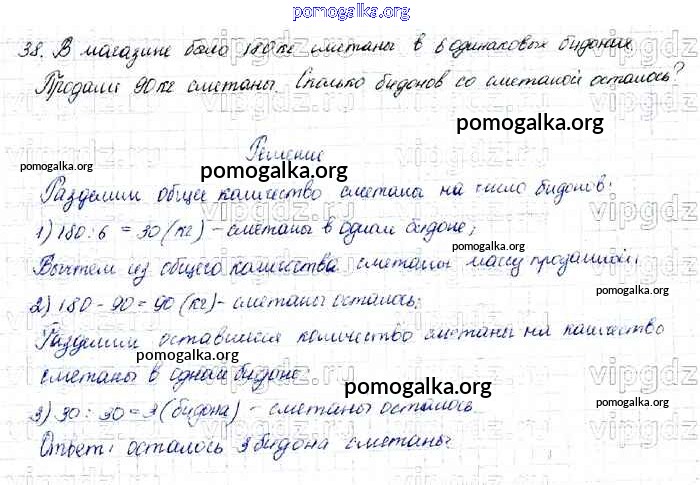 pomogalka.org
38. В магазине было 180 кг сметаны в 6 одинаковых бидонах.
Продали 90 кг сметаны. Сколько бидонов со сметаной осталось?
pomogalka.org
Решение
pomogalka.org
pomogalka.org
pomogalka.org
Разделим общее количество сметаны на число бидонов:
1) 180 : 6 = 30 (кг) - сметаны в одном бидоне;
pomogalka.org
Вычтем из общего количества сметаны массу проданной:
2) 180 - 90 = 90 (кг) - сметаны осталось;
Разделим оставшееся количество сметаны на количество
pomogalka.org
сметаны в одном бидоне:
pomogalka.org
3) 90 : 30 = 3 (бидона) - сметаны осталось.
Ответ: осталось 3 бидона сметаны.